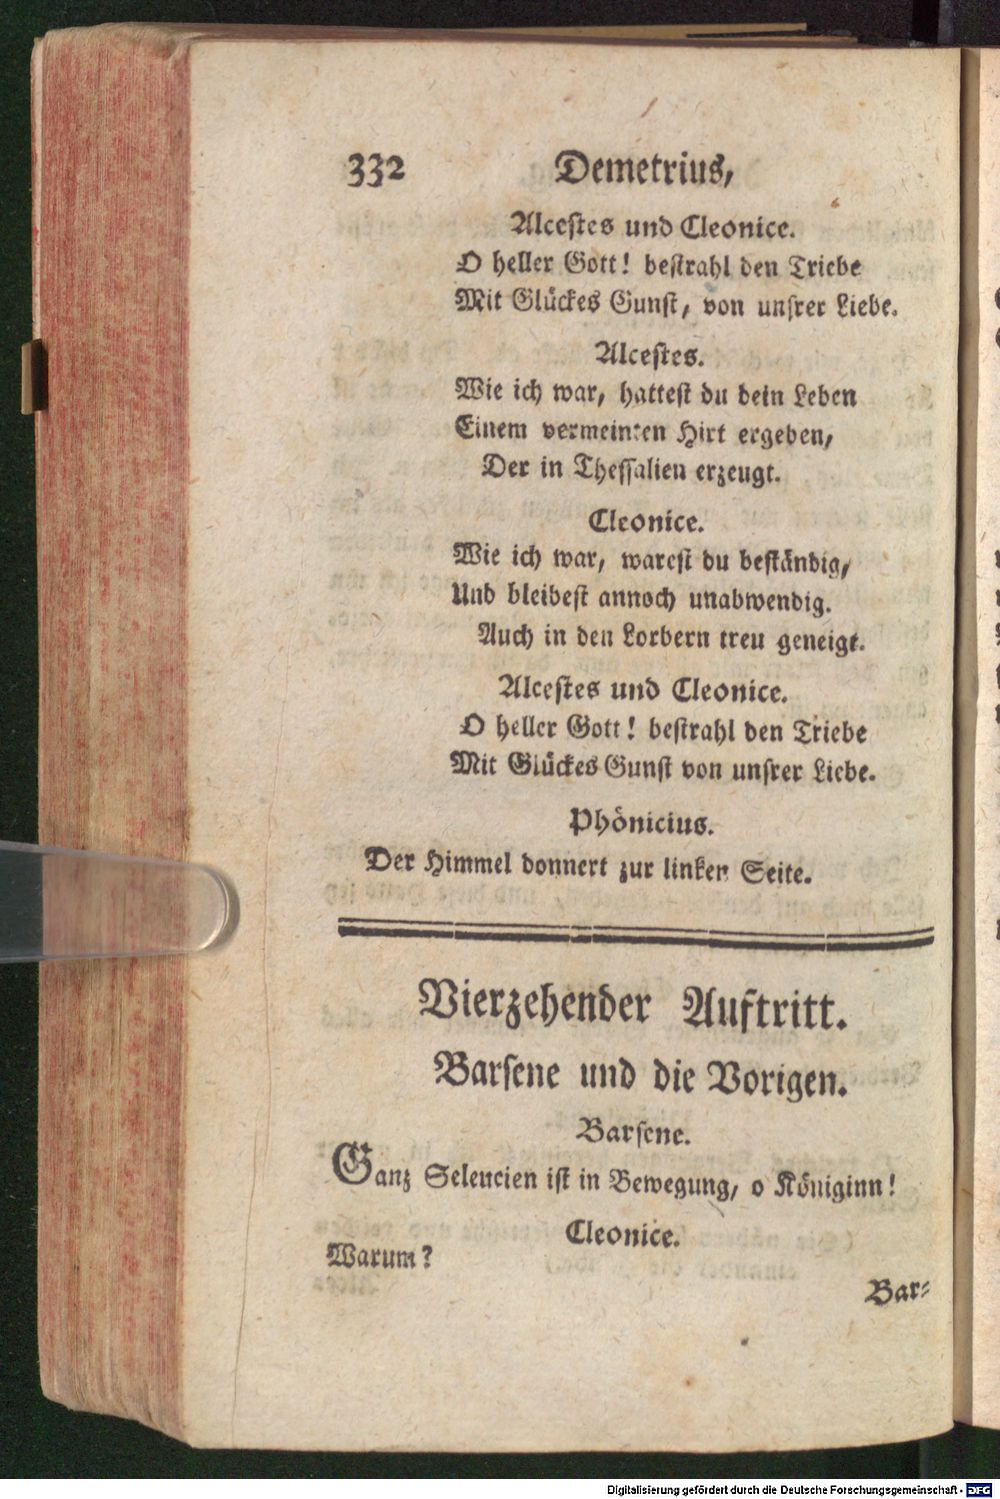 332 Demetrius,
Alcestes und Cleonice.
O heller Gott! bestrahl den Triebe
Mit Glückes Gunst, von unsrer Liebe.
Alcestes.
Wie ich war, hattest du dein Leben
Einem vermeinten Hirt ergeben,
Der in Thessalien erzeugt.
Cleonice.
Wie ich war, warest du beständig,
Und bleibest annoch unabwendig.
Auch in den Lorbern treu geneigt.
Alcestes und Cleonice.
O heller Gott! bestrahl den Triebe
Mit Glückes Gunst von unsrer Liebe.
Phönicius.
Der Himmel donnert zur linken Seite.
Vierzehender Auftritt.
Barsene und die Vorigen.
Barsene.
Ganz Seleucien ist in Bewegung, o Königinn!
Cleonice.
Warum?
Bar-
Digitalisierung gefördert durch die Deutsche Forschungsgemeinschaft - DFG